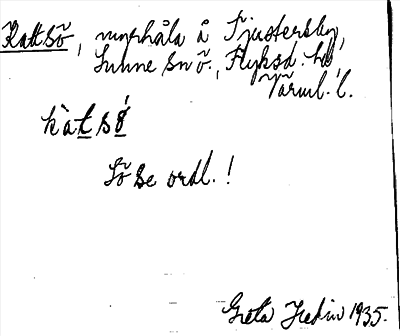 Kattsö, myrhåla å Tjustersby,
Sunne sn ö., Fryksd. hd,
Värml. l.
kàtsǿ
Sö se ordl. !
Greta Hedin 1935.